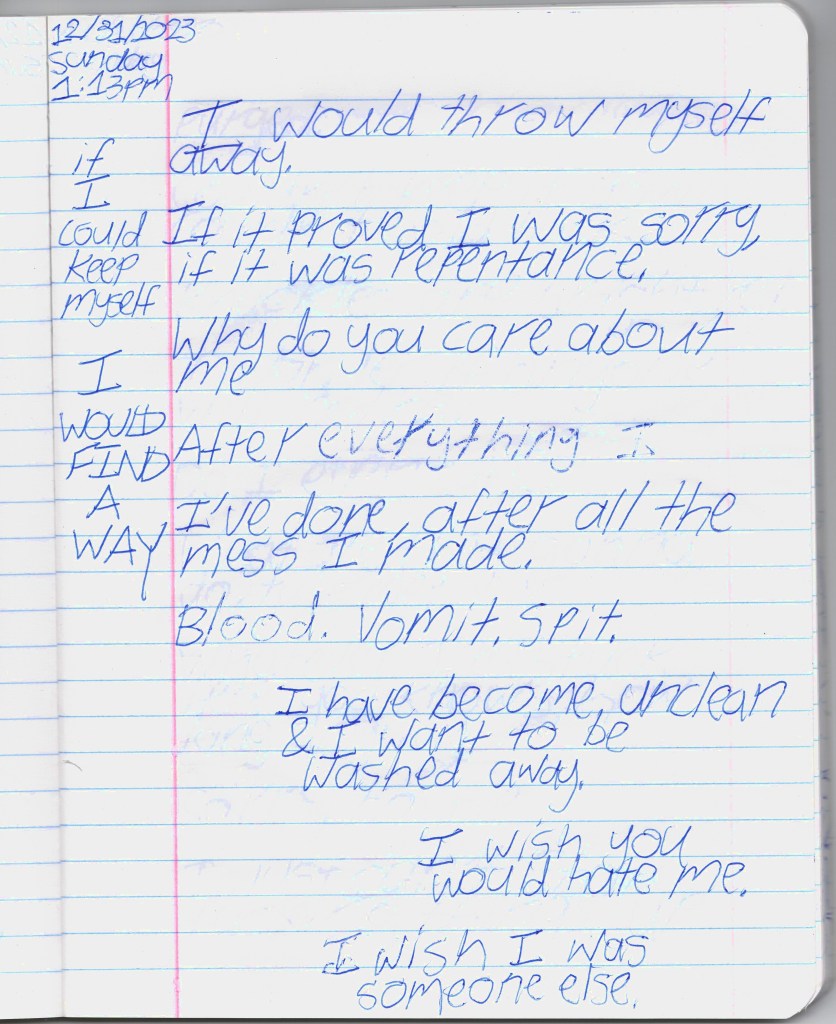 12/31/2023
sunday
1:13pm
I would throw myself
away.
If it proved I was sorry,
if it was repentance.
Why do you care about
me
After everything I
I've done, after all the
mess I made.
Blood. Vomit. Spit.
I have become unclean
& I want to be
washed away.
I wish you
would hate me.
I wish I was
someone else.
if
I
could
keep
myself
I
WOULD
FIND
A
WAY